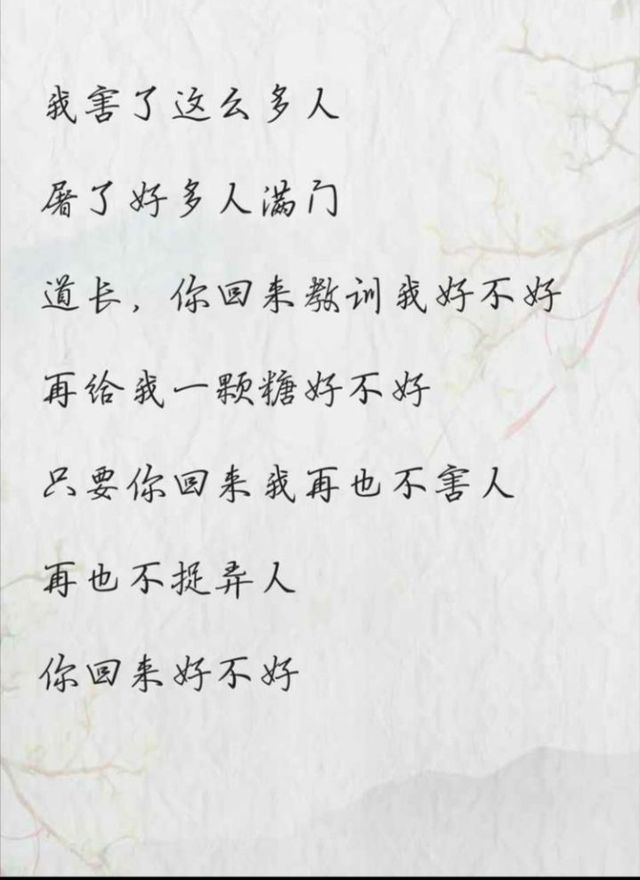 我害了这么多人
屠了好多人满门
道长，你回来教训我好不好
再给我一颗糖好不好
只要你回来我再也不害人
再也不捉弄人
你回来好不好